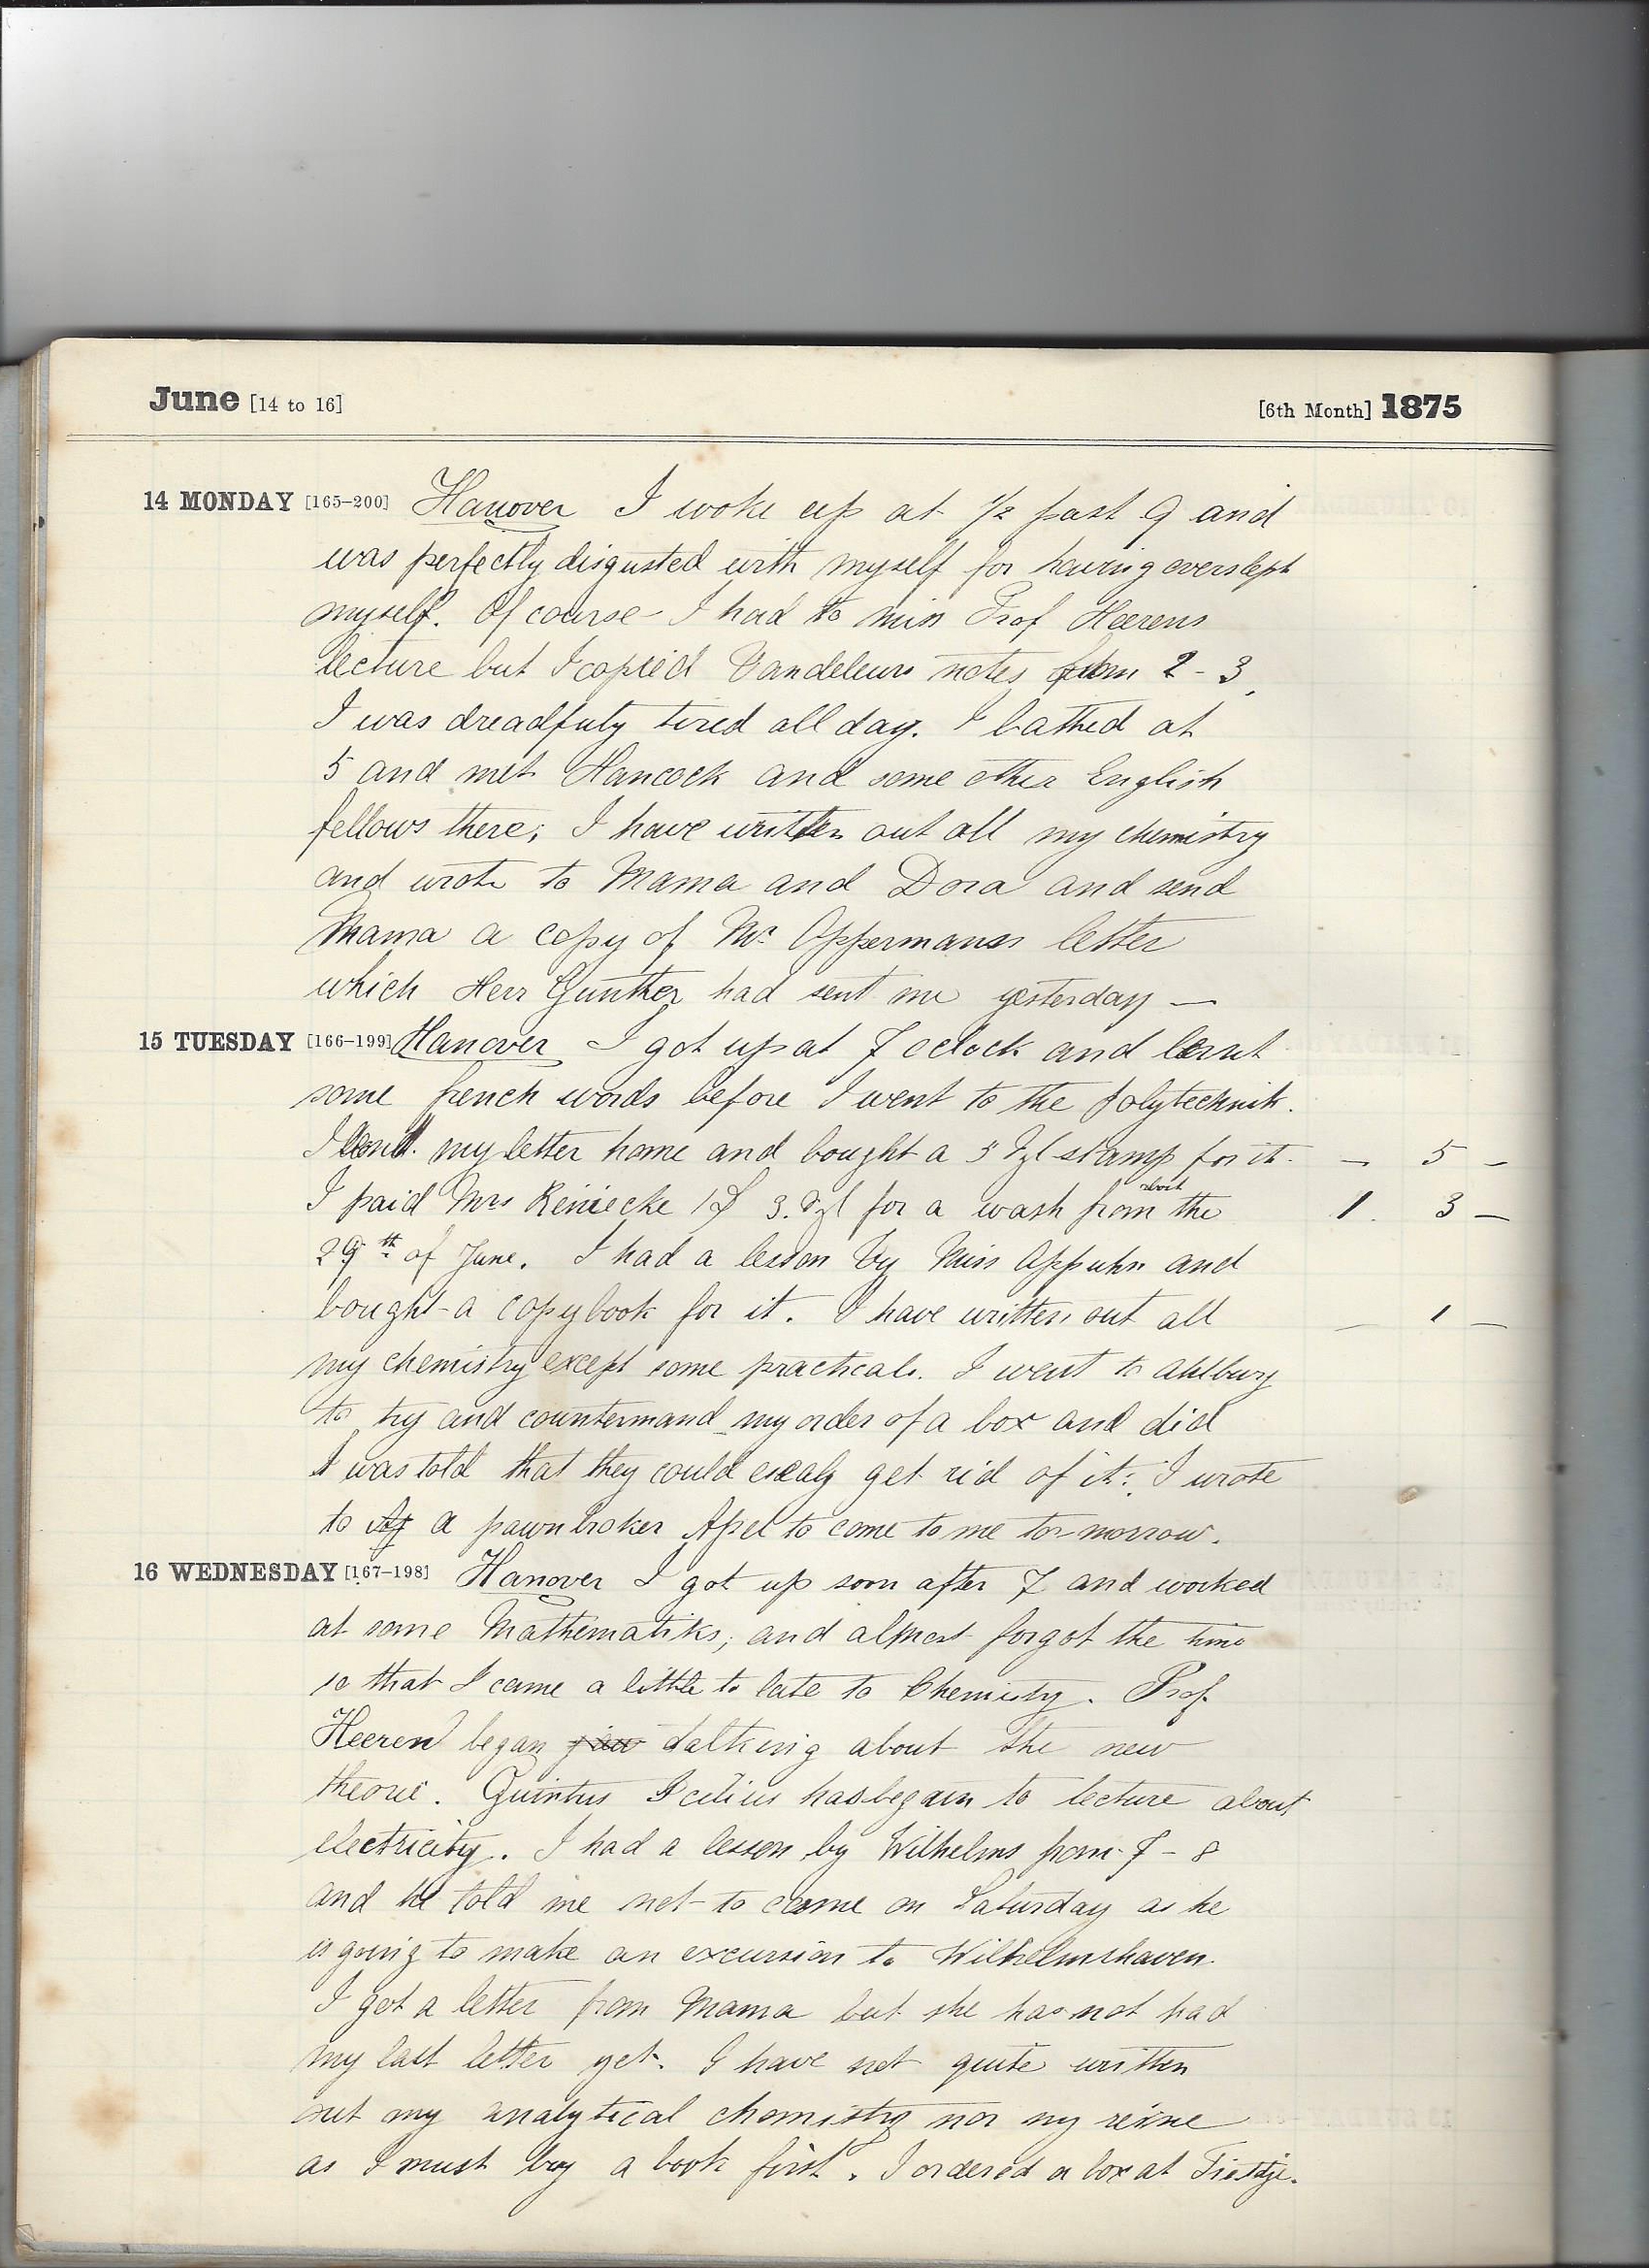 June [14 to 16] [6th Month] 1875
14 MONDAY [165-200] Hanover I woke up at 1/2 past 9 and
was perfectly disgusted with myself for having overslept
myself. Of course I had to miss Prof Heerens
lecture but I copied Vandeleurs notes from 2 - 3.
I was dreadfuly tired all day. I bathed at
5 and met Hancock and some other English
fellows there; I have written out all my chemistry
and wrote to Mama and Dora and send
Mama a copy of Mr Oppermanns letter
which Herr Gunther had sent me yesterday —
15 TUESDAY [166-199] Hanover I got up at 7 oclock and learnt
some french words before I went to the polytechnik.
I my letter home and bought a 5 stamp for it. — 5 —
I paid Mrs Reinecke 1 3. for a wash from about the 1. 3 —
29th of June. I had a lesson by Miss Appuhn and
bought a copybook for it. I have written out all — 1 —
my chemistry except some practicals. I went to Ahlburg
to try and countermand my order of a box and did
I was told that they could get rid of it: I wrote
to a pawnbroker Apel to come to me to-morrow.
16 WEDNESDAY [167-198] Hanover I got up soon after 7 and worked
at some Mathematiks; and almost forgot the time
so that I came a little to late to Chemistry. Prof.
Heeren began talking about the new
theorie. Quintus Icilius has began to lecture about
electricity. I had a lesson by Wilhelms from 7 - 8
and he told me not to come on Saturday as he
is going to make an excursion to Wilhelmshaven.
I got a letter from Mama but she has not had
my last letter yet. I have not quite written
out my analytical chemistry nor my reine
as I must buy a book first. I ordered a box at Tietje.